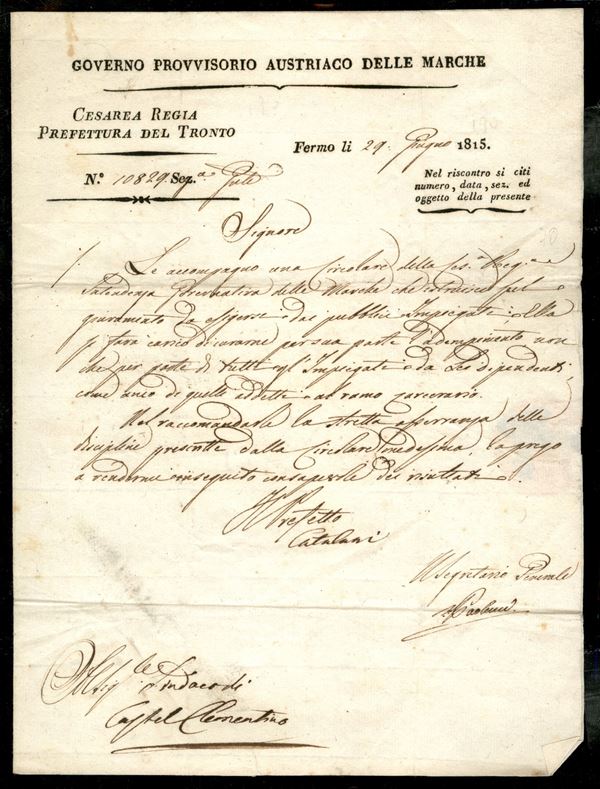 GOVERNO PROVVISORIO AUSTRIACO DELLE MARCHE
CESAREA REGIA
PREFETTURA DEL TRONTO
Fermo li 29. Giugno 1815.
N.° 10829. Sez.a
Nel riscontro si citi
numero, data, sez. ed
oggetto della presente
Signore
Le accompagno una Circolare della Ces.a Reg.a
Intendenza Governativa delle Marche che istruisce pel
giuramento da esigersi dai pubblici Impiegati. Ella
si farà carico di curarne per sua parte l'adempimento, non
che per parte di tutti gl'Impiegati da Lei dipendenti
come anco di quelli addetti al ramo carcerario.
Nel raccomandarle la stretta osservanza delle
discipline prescritte dalla Circolare medesima, la prego
a rendermi inseguito consapevole dei risultati.
Il Prefetto
Catalani
Il Segretario Generale
Al Sig.le Sindaco di
Castel Clementino